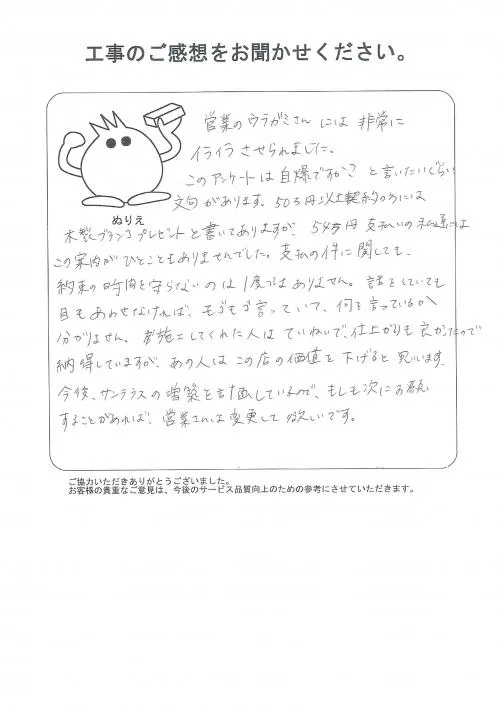 工事のご感想をお聞かせください。
営業のウラガミさん には 非常に
イライラ させられました。
このアンケートは自爆ですか？と言いたいぐらい
文句があります。50万円以上契約の方には
ぬりえ
木製ブランコプレゼントと書いてありますが、54万円支払いの私達には
この案内がひとこともありませんでした。支払の件に関しても、
約束の時間を守らないのは1度ではありません。話をしていても
目もあわせなければ、モゴモゴ言っていて、何を言っているか
分かりません。施工してくれた人は ていねいで、仕上がりも良かったので
納得していますが、あの人は この店の価値を下げると思います。
今後、サンテラスの増築を計画しているので、もしも次にお願い
することがあれば、営業さんは変更して欲しいです。
ご協力いただきありがとうございました。
お客様の貴重なご意見は、今後のサービス品質向上のための参考にさせていただきます。